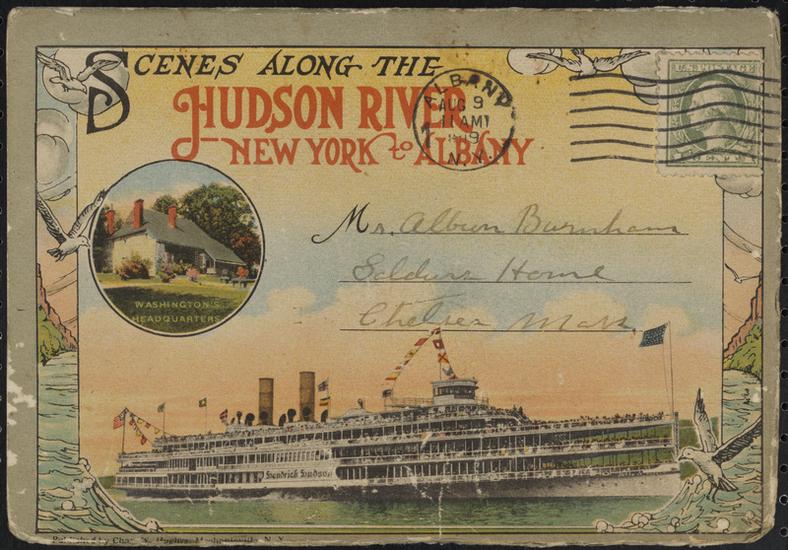 SCENES ALONG THE
HUDSON RIVER
NEW YORK to ALBANY
ALBANY
AUG 9
11 AM
N.Y.
Mr. Albion Burnham
Soldiers Home
Chelsea Mass.
WASHINGTON'S
HEADQUARTERS
Hendrick Hudson
Published by Chas. W. Hughes, Mechanicville, N. Y.